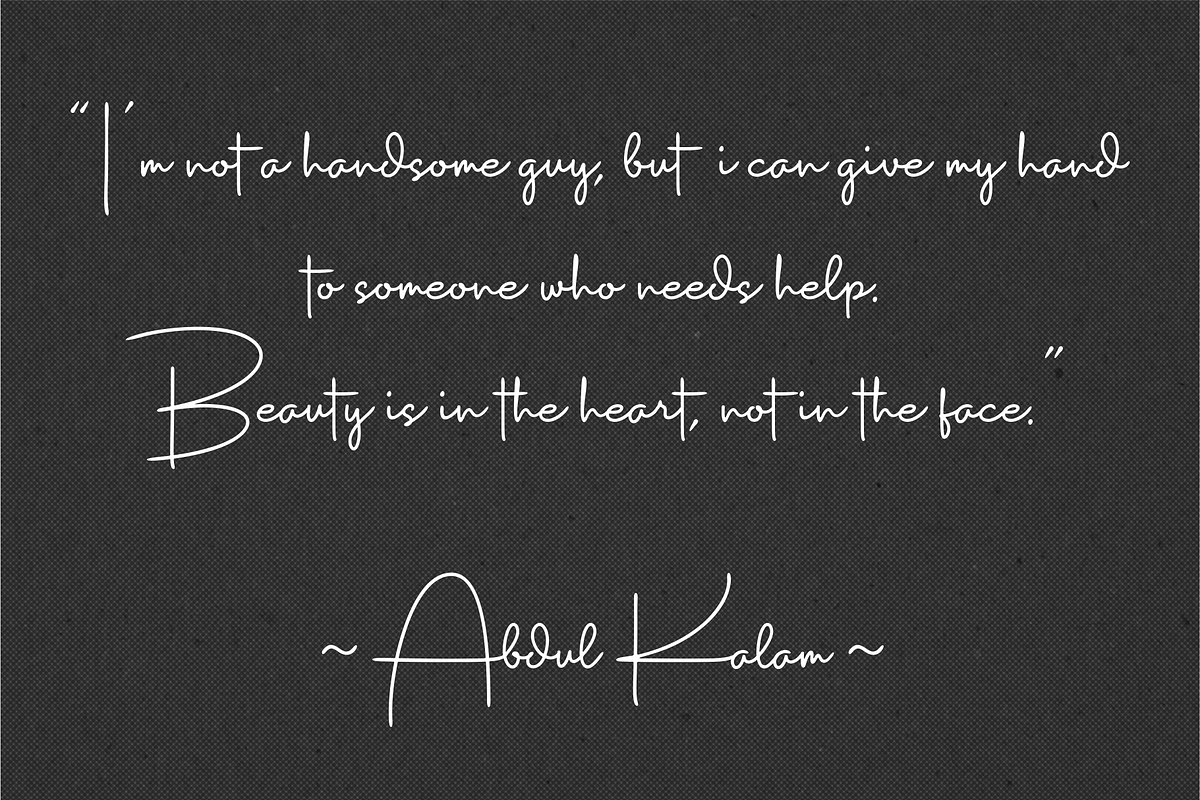 “I'm not a handsome guy, but i can give my hand
to someone who needs help.
Beauty is in the heart, not in the face.”
~ Abdul Kalam ~